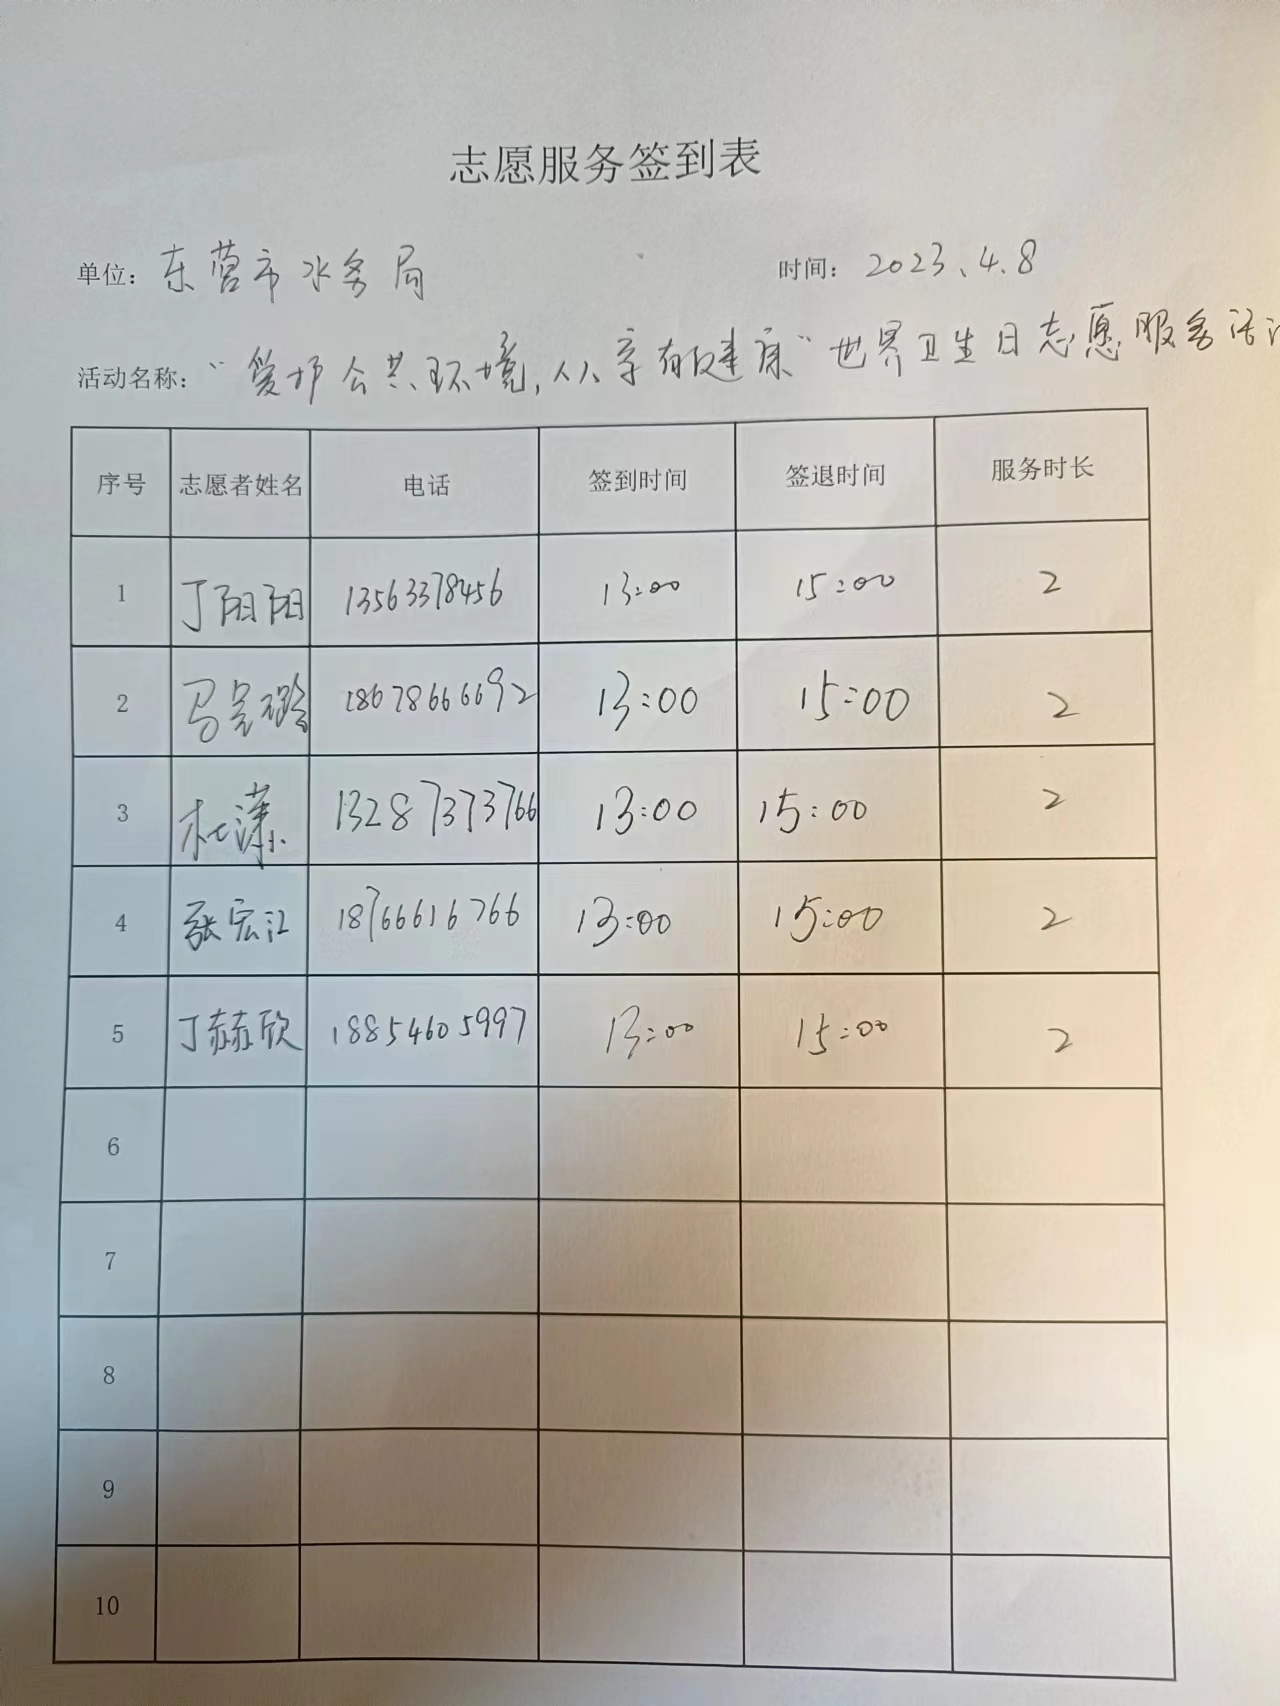 志愿服务签到表
单位：东营市水务局 时间：2023.4.8
活动名称："爱护公共环境,人人享有健康"世界卫生日志愿服务活
序号 志愿者姓名 电话 签到时间 签退时间 服务时长
1 丁阳阳 13563378456 13:00 15:00 2
2 马 18678666692 13:00 15:00 2
3 杜潇 13287373766 13:00 15:00 2
4 张宏江 18766616766 13:00 15:00 2
5 丁赫欣 18854605997 13:00 15:00 2
6
7
8
9
10